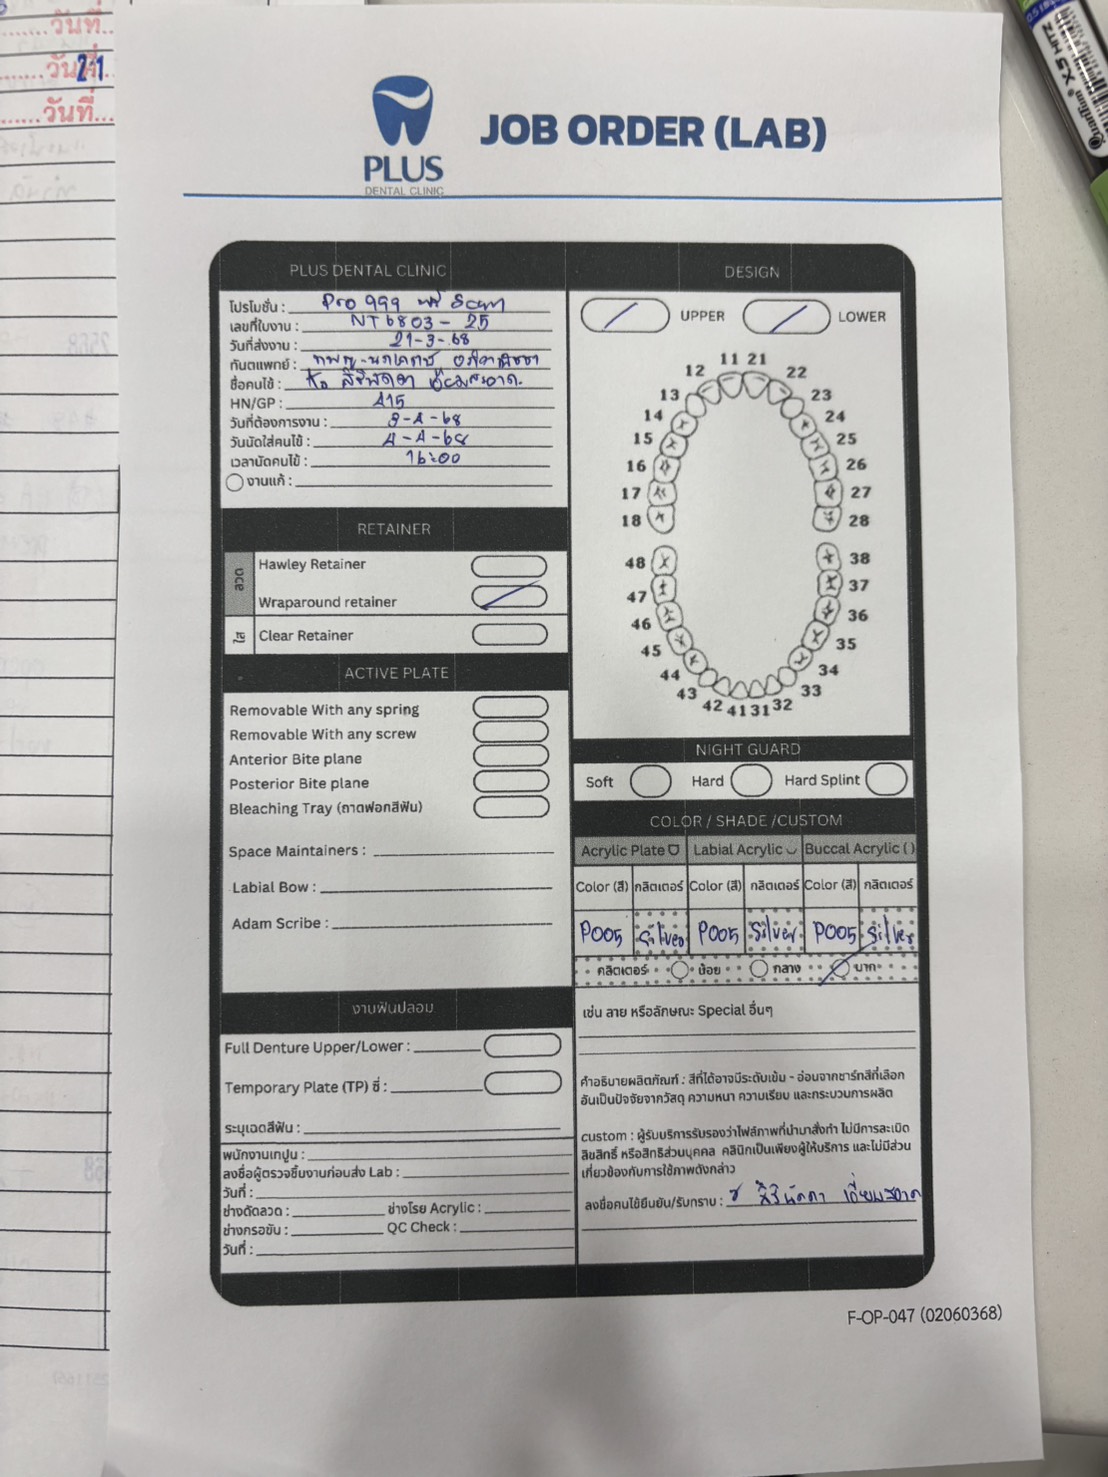 วันที่..
วันที่..
21
วันที่...
Quantum X5 HITZ
PLUS
DENTAL CLINIC
JOB ORDER (LAB)
PLUS DENTAL CLINIC
โปรโมชั่น : Pro 999 ฟรี Scan
เลขที่ใบงาน : NT6803-25
วันที่ส่งงาน : 21-3-68
ทันตแพทย์ :
ชื่อคนไข้ :
HN/GP : 415
วันที่ต้องการงาน : 3-4-68
วันนัดใส่คนไข้ : 4-4-68
เวลานัดคนไข้ : 16:00
งานแก้ :
RETAINER
ลวด
Hawley Retainer
Wraparound retainer
ใส
Clear Retainer
ACTIVE PLATE
Removable With any spring
Removable With any screw
Anterior Bite plane
Posterior Bite plane
Bleaching Tray (ถาดฟอกสีฟัน)
Space Maintainers :
Labial Bow :
Adam Scribe :
งานฟันปลอม
Full Denture Upper/Lower :
Temporary Plate (TP) ซี่ :
ระบุเฉดสีฟัน :
พนักงานเทปูน :
ลงชื่อผู้ตรวจชิ้นงานก่อนส่ง Lab :
วันที่ :
ช่างดัดลวด : ช่างโรย Acrylic :
ช่างกรอขัน : QC Check :
วันที่ :
DESIGN
UPPER LOWER
11 21
12 22
13 23
14 24
15 25
16 26
17 27
18 28
48 38
47 37
46 36
45 35
44 34
43 33
42 41 31 32
NIGHT GUARD
Soft Hard Hard Splint
COLOR / SHADE /CUSTOM
Acrylic Plate Labial Acrylic Buccal Acrylic ( )
Color (สี) กลิตเตอร์ Color (สี) กลิตเตอร์ Color (สี) กลิตเตอร์
P005 Silver P005 Silver P005 Silver
กลิตเตอร์ น้อย กลาง มาก
เช่น ลาย หรือลักษณะ Special อื่นๆ
คำอธิบายผลิตภัณฑ์ : สีที่ได้อาจมีระดับเข้ม - อ่อนจากชาร์ทสีที่เลือก
อันเป็นปัจจัยจากวัสดุ ความหนา ความเรียบ และกระบวนการผลิต
custom : ผู้รับบริการรับรองว่าไฟล์ภาพที่นำมาสั่งทำ ไม่มีการละเมิด
ลิขสิทธิ์ หรือสิทธิส่วนบุคคล คลินิกเป็นเพียงผู้ให้บริการ และไม่มีส่วน
เกี่ยวข้องกับการใช้ภาพดังกล่าว
ลงชื่อคนไข้ยืนยัน/รับทราบ : เอี่ยมสอาด
F-OP-047 (02060368)